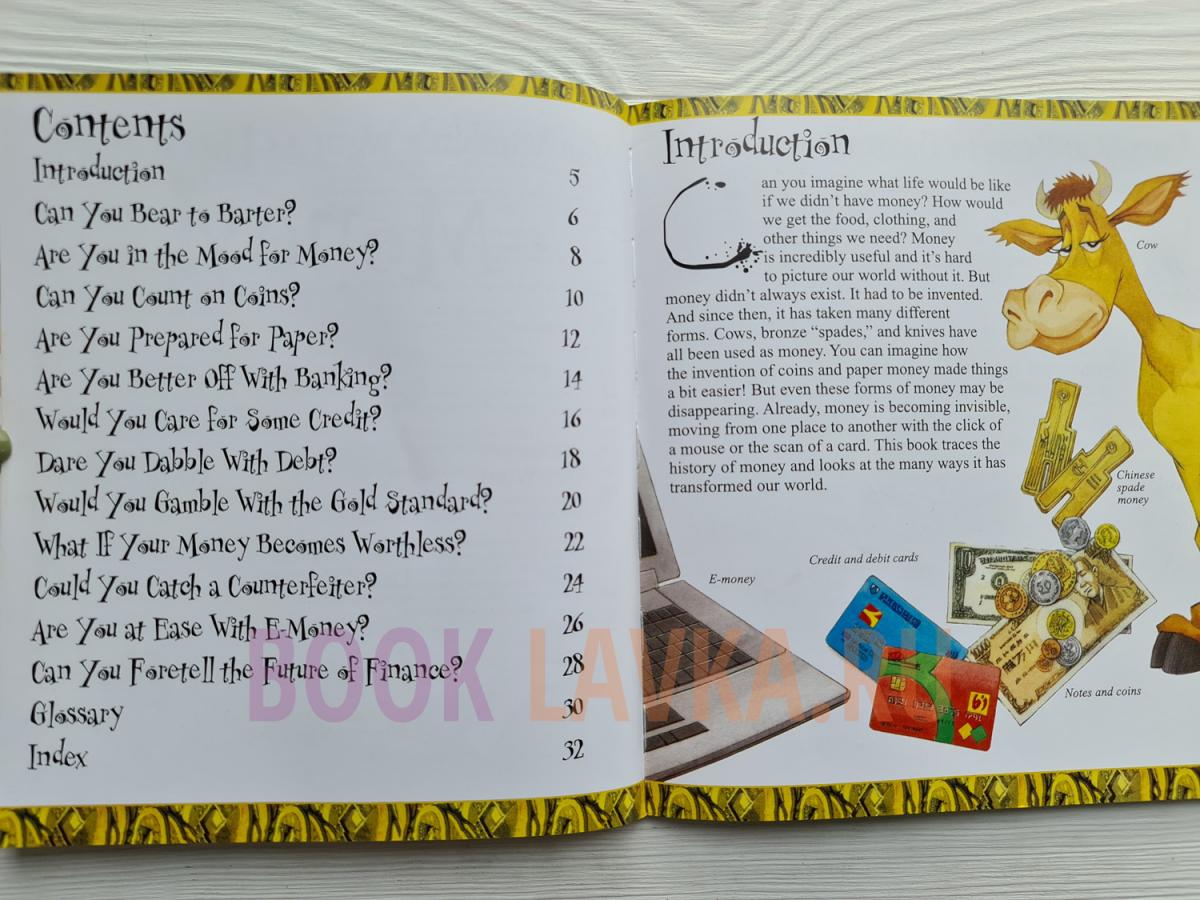 Contents
Introduction 5
Can You Bear to Barter? 6
Are You in the Mood for Money? 8
Can You Count on Coins? 10
Are You Prepared for Paper? 12
Are You Better Off With Banking? 14
Would You Care for Some Credit? 16
Dare You Dabble With Debt? 18
Would You Gamble With the Gold Standard? 20
What If Your Money Becomes Worthless? 22
Could You Catch a Counterfeiter? 24
Are You at Ease With E-Money? 26
Can You Foretell the Future of Finance? 28
Glossary 30
Index 32
Introduction
Can you imagine what life would be like
if we didn't have money? How would
we get the food, clothing, and
other things we need? Money
is incredibly useful and it's hard
to picture our world without it. But
money didn't always exist. It had to be invented.
And since then, it has taken many different
forms. Cows, bronze “spades,” and knives have
all been used as money. You can imagine how
the invention of coins and paper money made things
a bit easier! But even these forms of money may be
disappearing. Already, money is becoming invisible,
moving from one place to another with the click of
a mouse or the scan of a card. This book traces the
history of money and looks at the many ways it has
transformed our world.
Cow
Chinese
spade
money
Credit and debit cards
E-money
Notes and coins
BOOK LAVKA.RU